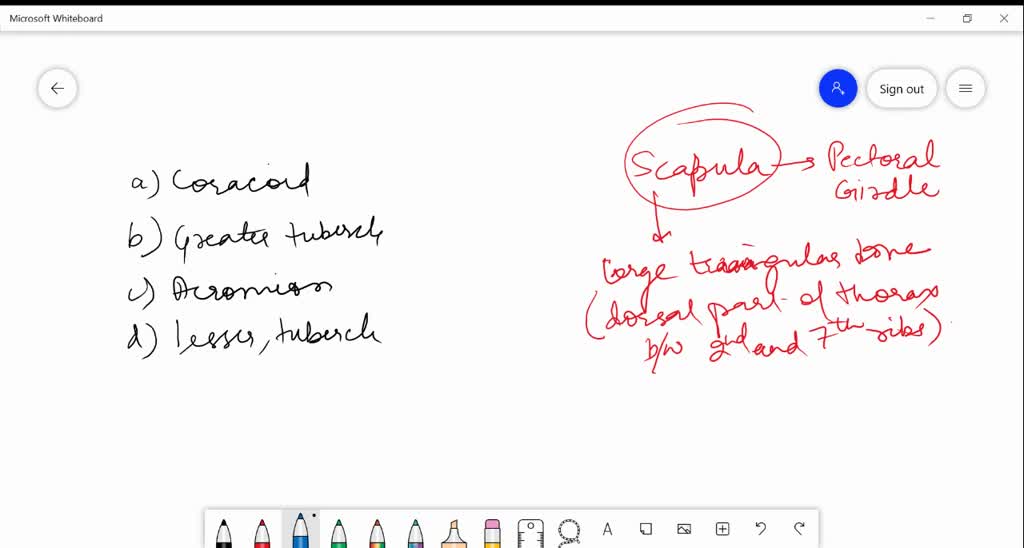 Microsoft Whiteboard
Sign out
a) Coracoid
b) Greater tubercle
c) Acromion
d) lesser, tubercle
Scapula → Pectoral
Girdle
large triangular bone
(dorsal part of thorax
b/w 2nd and 7th ribs)
A